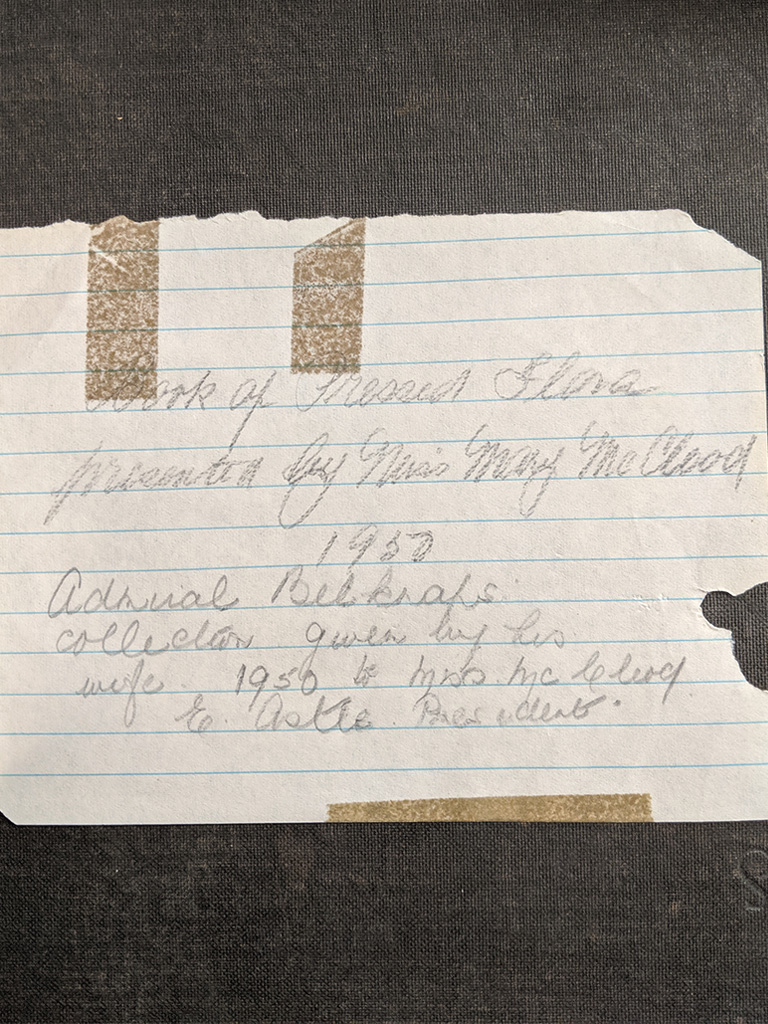 Book of Pressed Flora
presented by Miss May McCleod
1950
Admiral Belknaps
collection given by his
wife. 1950 to Miss McCleod
E. Astle President.